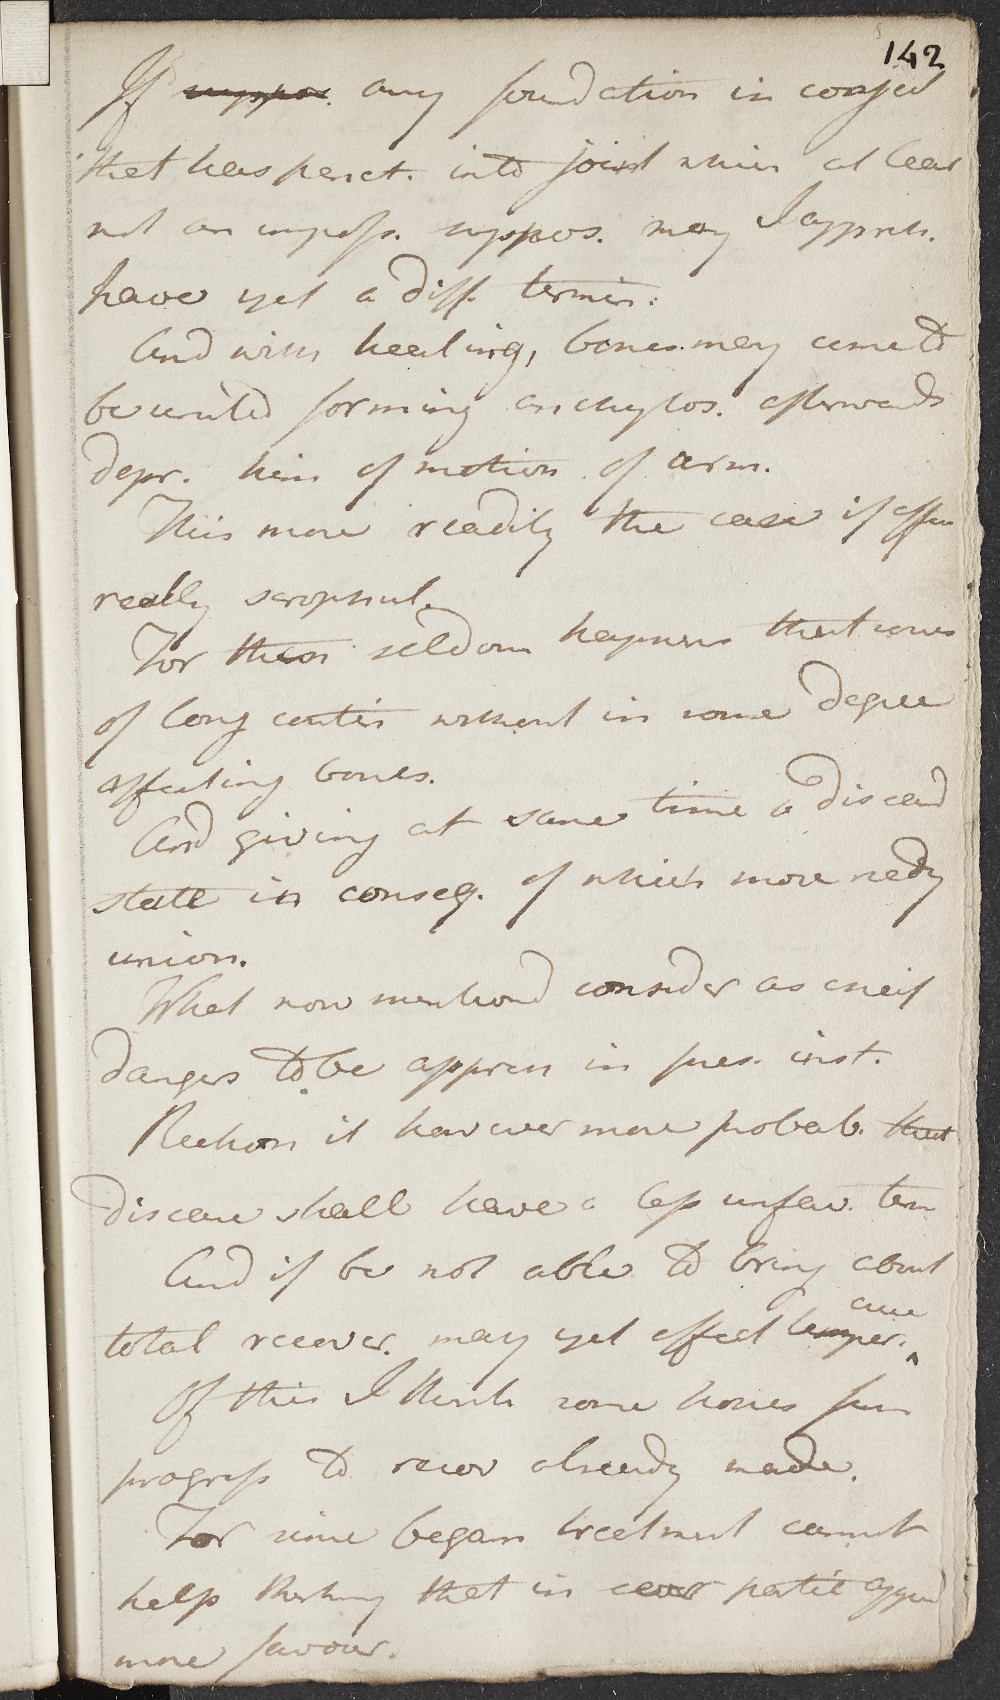 142
If suppos. any foundation in conject
that has penet. into joint which at least
not an imposs. suppos. may I appreh.
have yet a diff. termin.
And with healing, bones may come to
be united forming anchylos. afterwards
depr. him of motion of arm.
This more readily the case if affn
really scrophul.
For then seldom happens that sores
of long contin without in some degree
affecting bones.
And giving at same time a diseasd
state in conseq. of which more redy
union.
What now mentiond consider as chief
dangers to be appreh in pres. inst.
Reckon it however more probab. that
disease shall have a less unfav. term
And if be not able to bring about
total recover. may yet effect temper. cure
Of this I think some hopes from
progress to recov already made.
For since began treatment cannot
help thinking that in every partic appear
more favour.